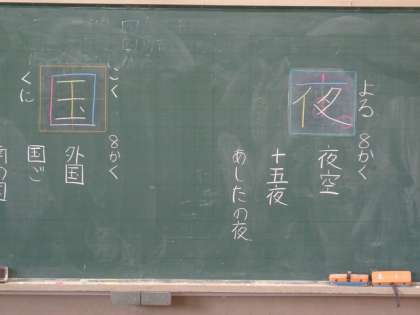 夜
よる
8かく
夜空
十五夜
あしたの夜
国
こく
くに
8かく
外国
国ご